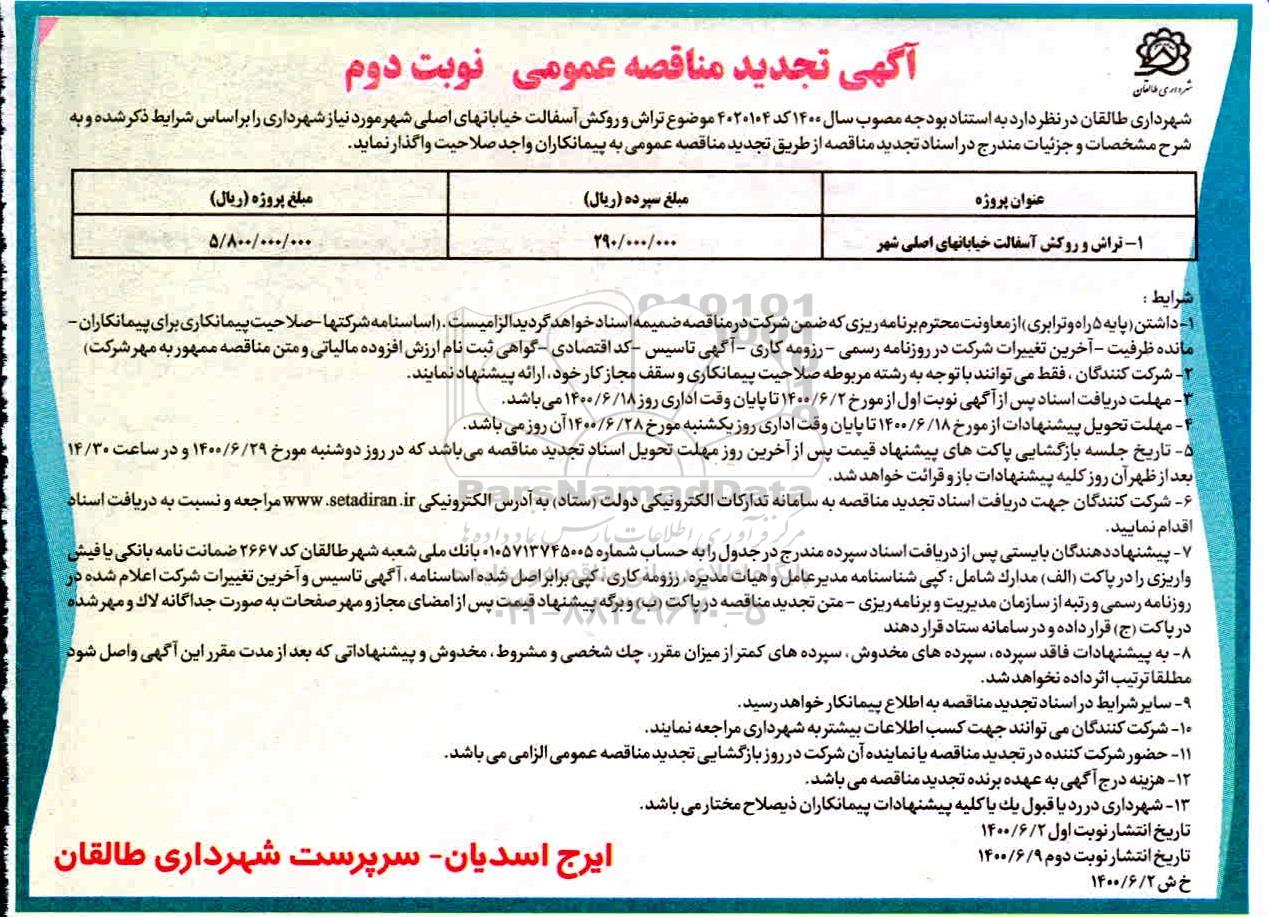 شهرداری طالقان
آگهی تجدید مناقصه عمومی نوبت دوم
شهرداری طالقان در نظر دارد به استناد بودجه مصوب سال ۱۴۰۰ کد ۴۰۲۰۱۰۴ موضوع تراش و روکش آسفالت خیابانهای اصلی شهر مورد نیاز شهرداری را بر اساس شرایط ذکر شده و به
شرح مشخصات و جزئیات مندرج در اسناد تجدید مناقصه از طریق تجدید مناقصه عمومی به پیمانکاران واجد صلاحیت واگذار نماید.
عنوان پروژه مبلغ سپرده (ریال) مبلغ پروژه (ریال)
۱- تراش و روکش آسفالت خیابانهای اصلی شهر ۲۹۰/۰۰۰/۰۰۰ ۵/۸۰۰/۰۰۰/۰۰۰
شرایط :
۱- داشتن (پایه ۵ راه و ترابری) از معاونت محترم برنامه ریزی که ضمن شرکت در مناقصه ضمیمه اسناد خواهد گردید الزامیست. (اساسنامه شرکتها - صلاحیت پیمانکاری برای پیمانکاران -
مانده ظرفیت - آخرین تغییرات شرکت در روزنامه رسمی - رزومه کاری - آگهی تاسیس - کد اقتصادی - گواهی ثبت نام ارزش افزوده مالیاتی و متن مناقصه ممهور به مهر شرکت)
۲- شرکت کنندگان ، فقط می توانند با توجه به رشته مربوطه صلاحیت پیمانکاری و سقف مجاز کار خود ، ارائه پیشنهاد نمایند.
۳- مهلت دریافت اسناد پس از آگهی نوبت اول از مورخ ۱۴۰۰/۶/۲ تا پایان وقت اداری روز ۱۴۰۰/۶/۱۸ می باشد.
۴- مهلت تحویل پیشنهادات از مورخ ۱۴۰۰/۶/۱۸ تا پایان وقت اداری روز یکشنبه مورخ ۱۴۰۰/۶/۲۸ آن روز می باشد.
۵- تاریخ جلسه بازگشایی پاکت های پیشنهاد قیمت پس از آخرین روز مهلت تحویل اسناد تجدید مناقصه می باشد که در روز دوشنبه مورخ ۱۴۰۰/۶/۲۹ و در ساعت ۱۴/۳۰
بعد از ظهر آن روز کلیه پیشنهادات باز و قرائت خواهد شد.
ParsNamadData
۶- شرکت کنندگان جهت دریافت اسناد تجدید مناقصه به سامانه تدارکات الکترونیکی دولت (ستاد) به آدرس الکترونیکی www.setadiran.ir مراجعه و نسبت به دریافت اسناد
اقدام نمایید.
مرکز فرآوری اطلاعات پارس نماد داده ها
۷- پیشنهاد دهندگان بایستی پس از دریافت اسناد سپرده مندرج در جدول را به حساب شماره ۰۱۰۵۷۱۳۷۴۵۰۰۵ بانک ملی شعبه شهر طالقان کد ۲۶۶۷ ضمانت نامه بانکی یا فیش
واریزی را در پاکت (الف) مدارک شامل : کپی شناسنامه مدیر عامل و هیات مدیره، رزومه کاری ، کپی برابر اصل شده اساسنامه ، آگهی تاسیس و آخرین تغییرات شرکت اعلام شده در
روزنامه رسمی و رتبه از سازمان مدیریت و برنامه ریزی - متن تجدید مناقصه در پاکت (ب) و برگه پیشنهاد قیمت پس از امضای مجاز و مهر صفحات به صورت جداگانه لاک و مهر شده
در پاکت (ج) قرار داده و در سامانه ستاد قرار دهند
۸- به پیشنهادات فاقد سپرده ، سپرده های مخدوش ، سپرده های کمتر از میزان مقرر، چک شخصی و مشروط، مخدوش و پیشنهاداتی که بعد از مدت مقرر این آگهی واصل شود
مطلقا ترتیب اثر داده نخواهد شد.
۹- سایر شرایط در اسناد تجدید مناقصه به اطلاع پیمانکار خواهد رسید.
۱۰- شرکت کنندگان می توانند جهت کسب اطلاعات بیشتر به شهرداری مراجعه نمایند.
۱۱- حضور شرکت کننده در تجدید مناقصه یا نماینده آن شرکت در روز بازگشایی تجدید مناقصه عمومی الزامی می باشد.
۱۲- هزینه درج آگهی به عهده برنده تجدید مناقصه می باشد.
۱۳- شهرداری در رد یا قبول یک یا کلیه پیشنهادات پیمانکاران ذیصلاح مختار می باشد.
تاریخ انتشار نوبت اول ۱۴۰۰/۶/۲
تاریخ انتشار نوبت دوم ۱۴۰۰/۶/۹
خ ش ۱۴۰۰/۶/۲
ایرج اسدیان- سرپرست شهرداری طالقان